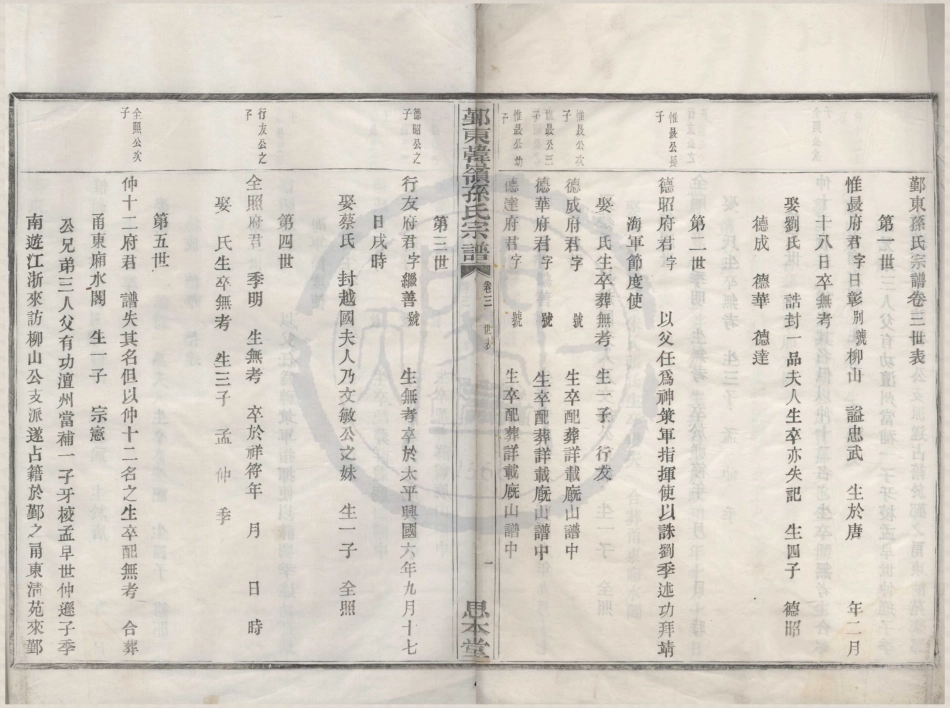 鄞東孫氏宗譜卷三世表
第一世
惟晸府君字日彰別號柳山 謚忠武 生於唐 年二月
十八日卒無考
娶劉氏 誥封一品夫人生卒亦失記 生四子 德昭
德成 德華 德達
第二世
惟晸公長
子
德昭府君字 以父任爲神策軍指揮使以誅劉季述功拜靖
海軍節度使
娶 氏生卒葬無考 生一子 行友
惟晸公次
子
德成府君字 號 生卒配葬詳載廐山譜中
惟晸公三
子
德華府君字 號 生卒配葬詳載廐山譜中
惟晸公幼
子
德達府君字 號 生卒配葬詳載廐山譜中
鄞東韓嶺孫氏宗譜 卷三 世表 一 思本堂
第三世
德昭公之
子
行友府君字繼善號 生無考卒於太平興國六年九月十七
日戌時
娶蔡氏 封越國夫人乃文敏公之妹 生一子 全照
第四世
行友公之
子
全照府君 季明 生無考 卒於祥符年 月 日 時
娶 氏生卒無考 生三子 孟 仲 季
第五世
全照公次
子
仲十二府君 譜失其名但以仲十二名之生卒配無考 合葬
甬東廟水閣 生一子 宗憲
公兄弟三人父有功澶州當補一子牙校孟早世仲遜子季
南遊江浙來訪柳山公支派遂占籍於鄞之甬東清苑來鄞